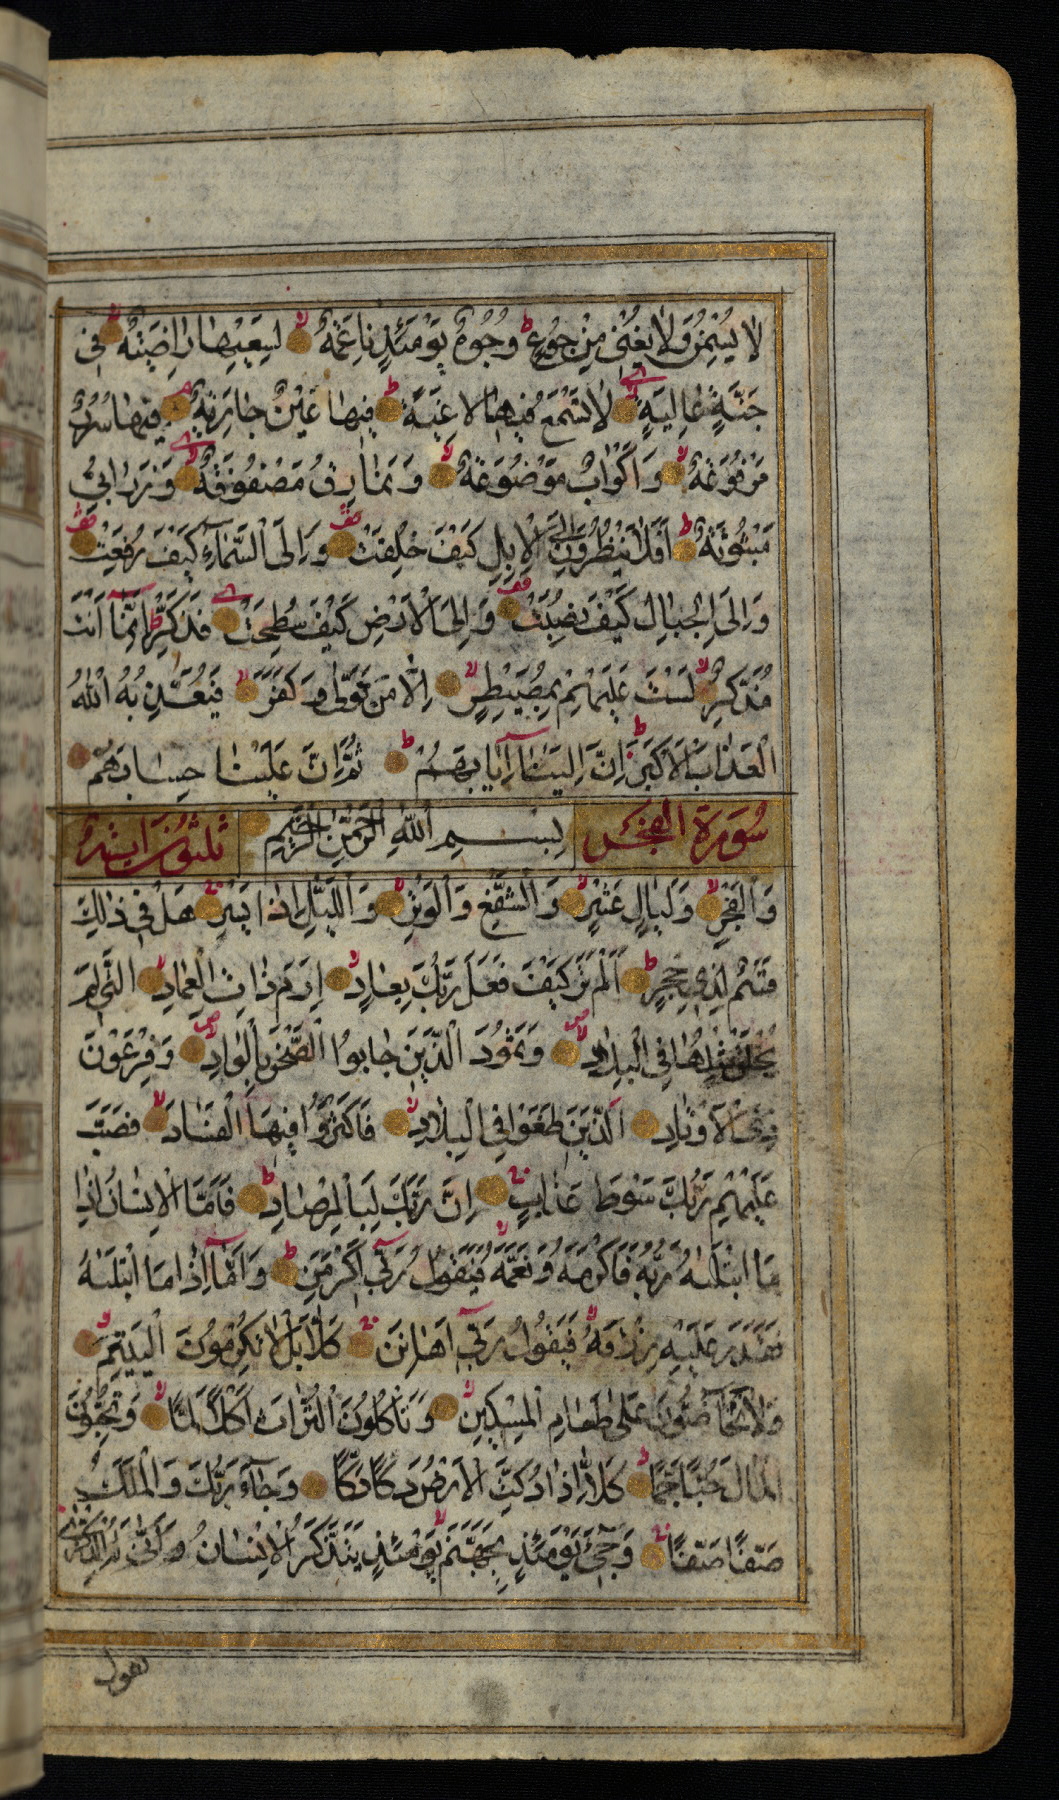 لَا يُسْمِنُ وَلَا يُغْنِي مِنْ جُوعٍ ط وُجُوهٌ يَوْمَئِذٍ نَاعِمَةٌ لا لِسَعْيِهَا رَاضِيَةٌ لا فِي
جَنَّةٍ عَالِيَةٍ لا لَا تَسْمَعُ فِيهَا لَاغِيَةً ط فِيهَا عَيْنٌ جَارِيَةٌ م فِيهَا سُرُرٌ
مَرْفُوعَةٌ لا وَأَكْوَابٌ مَوْضُوعَةٌ لا وَنَمَارِقُ مَصْفُوفَةٌ لا وَزَرَابِيُّ
مَبْثُوثَةٌ ط أَفَلَا يَنْظُرُونَ إِلَى الْإِبِلِ كَيْفَ خُلِقَتْ قف وَإِلَى السَّمَاءِ كَيْفَ رُفِعَتْ قف
وَإِلَى الْجِبَالِ كَيْفَ نُصِبَتْ قف وَإِلَى الْأَرْضِ كَيْفَ سُطِحَتْ فَذَكِّرْ ط إِنَّمَا أَنْتَ
مُذَكِّرٌ لا لَسْتَ عَلَيْهِمْ بِمُصَيْطِرٍ لا إِلَّا مَنْ تَوَلَّى وَكَفَرَ لا فَيُعَذِّبُهُ اللَّهُ
الْعَذَابَ الْأَكْبَرَ ط إِنَّ إِلَيْنَا إِيَابَهُمْ ط ثُمَّ إِنَّ عَلَيْنَا حِسَابَهُمْ
سُورَةُ الْفَجْرِ بِسْمِ اللَّهِ الرَّحْمَنِ الرَّحِيمِ ثلثون آية
وَالْفَجْرِ لا وَلَيَالٍ عَشْرٍ لا وَالشَّفْعِ وَالْوَتْرِ لا وَاللَّيْلِ إِذَا يَسْرِ هَلْ فِي ذَلِكَ
قَسَمٌ لِذِي حِجْرٍ ط أَلَمْ تَرَ كَيْفَ فَعَلَ رَبُّكَ بِعَادٍ لا إِرَمَ ذَاتِ الْعِمَادِ لا الَّتِي لَمْ
يُخْلَقْ مِثْلُهَا فِي الْبِلَادِ ص وَثَمُودَ الَّذِينَ جَابُوا الصَّخْرَ بِالْوَادِ ص وَفِرْعَوْنَ
ذِي الْأَوْتَادِ الَّذِينَ طَغَوْا فِي الْبِلَادِ لا فَأَكْثَرُوا فِيهَا الْفَسَادَ لا فَصَبَّ
عَلَيْهِمْ رَبُّكَ سَوْطَ عَذَابٍ إِنَّ رَبَّكَ لَبِالْمِرْصَادِ ط فَأَمَّا الْإِنْسَانُ إِذَا
مَا ابْتَلَاهُ رَبُّهُ فَأَكْرَمَهُ وَنَعَّمَهُ لا فَيَقُولُ رَبِّي أَكْرَمَنِ ط وَأَمَّا إِذَا مَا ابْتَلَاهُ
فَقَدَرَ عَلَيْهِ رِزْقَهُ لا فَيَقُولُ رَبِّي أَهَانَنِ كَلَّا بَلْ لَا تُكْرِمُونَ الْيَتِيمَ لا
وَلَا تَحَاضُّونَ عَلَى طَعَامِ الْمِسْكِينِ لا وَتَأْكُلُونَ التُّرَاثَ أَكْلًا لَمًّا لا وَتُحِبُّونَ
الْمَالَ حُبًّا جَمًّا ط كَلَّا إِذَا دُكَّتِ الْأَرْضُ دَكًّا دَكًّا وَجَاءَ رَبُّكَ وَالْمَلَكُ
صَفًّا صَفًّا وَجِيءَ يَوْمَئِذٍ بِجَهَنَّمَ لا يَوْمَئِذٍ يَتَذَكَّرُ الْإِنْسَانُ وَأَنَّى لَهُ الذِّكْرَى
يقول